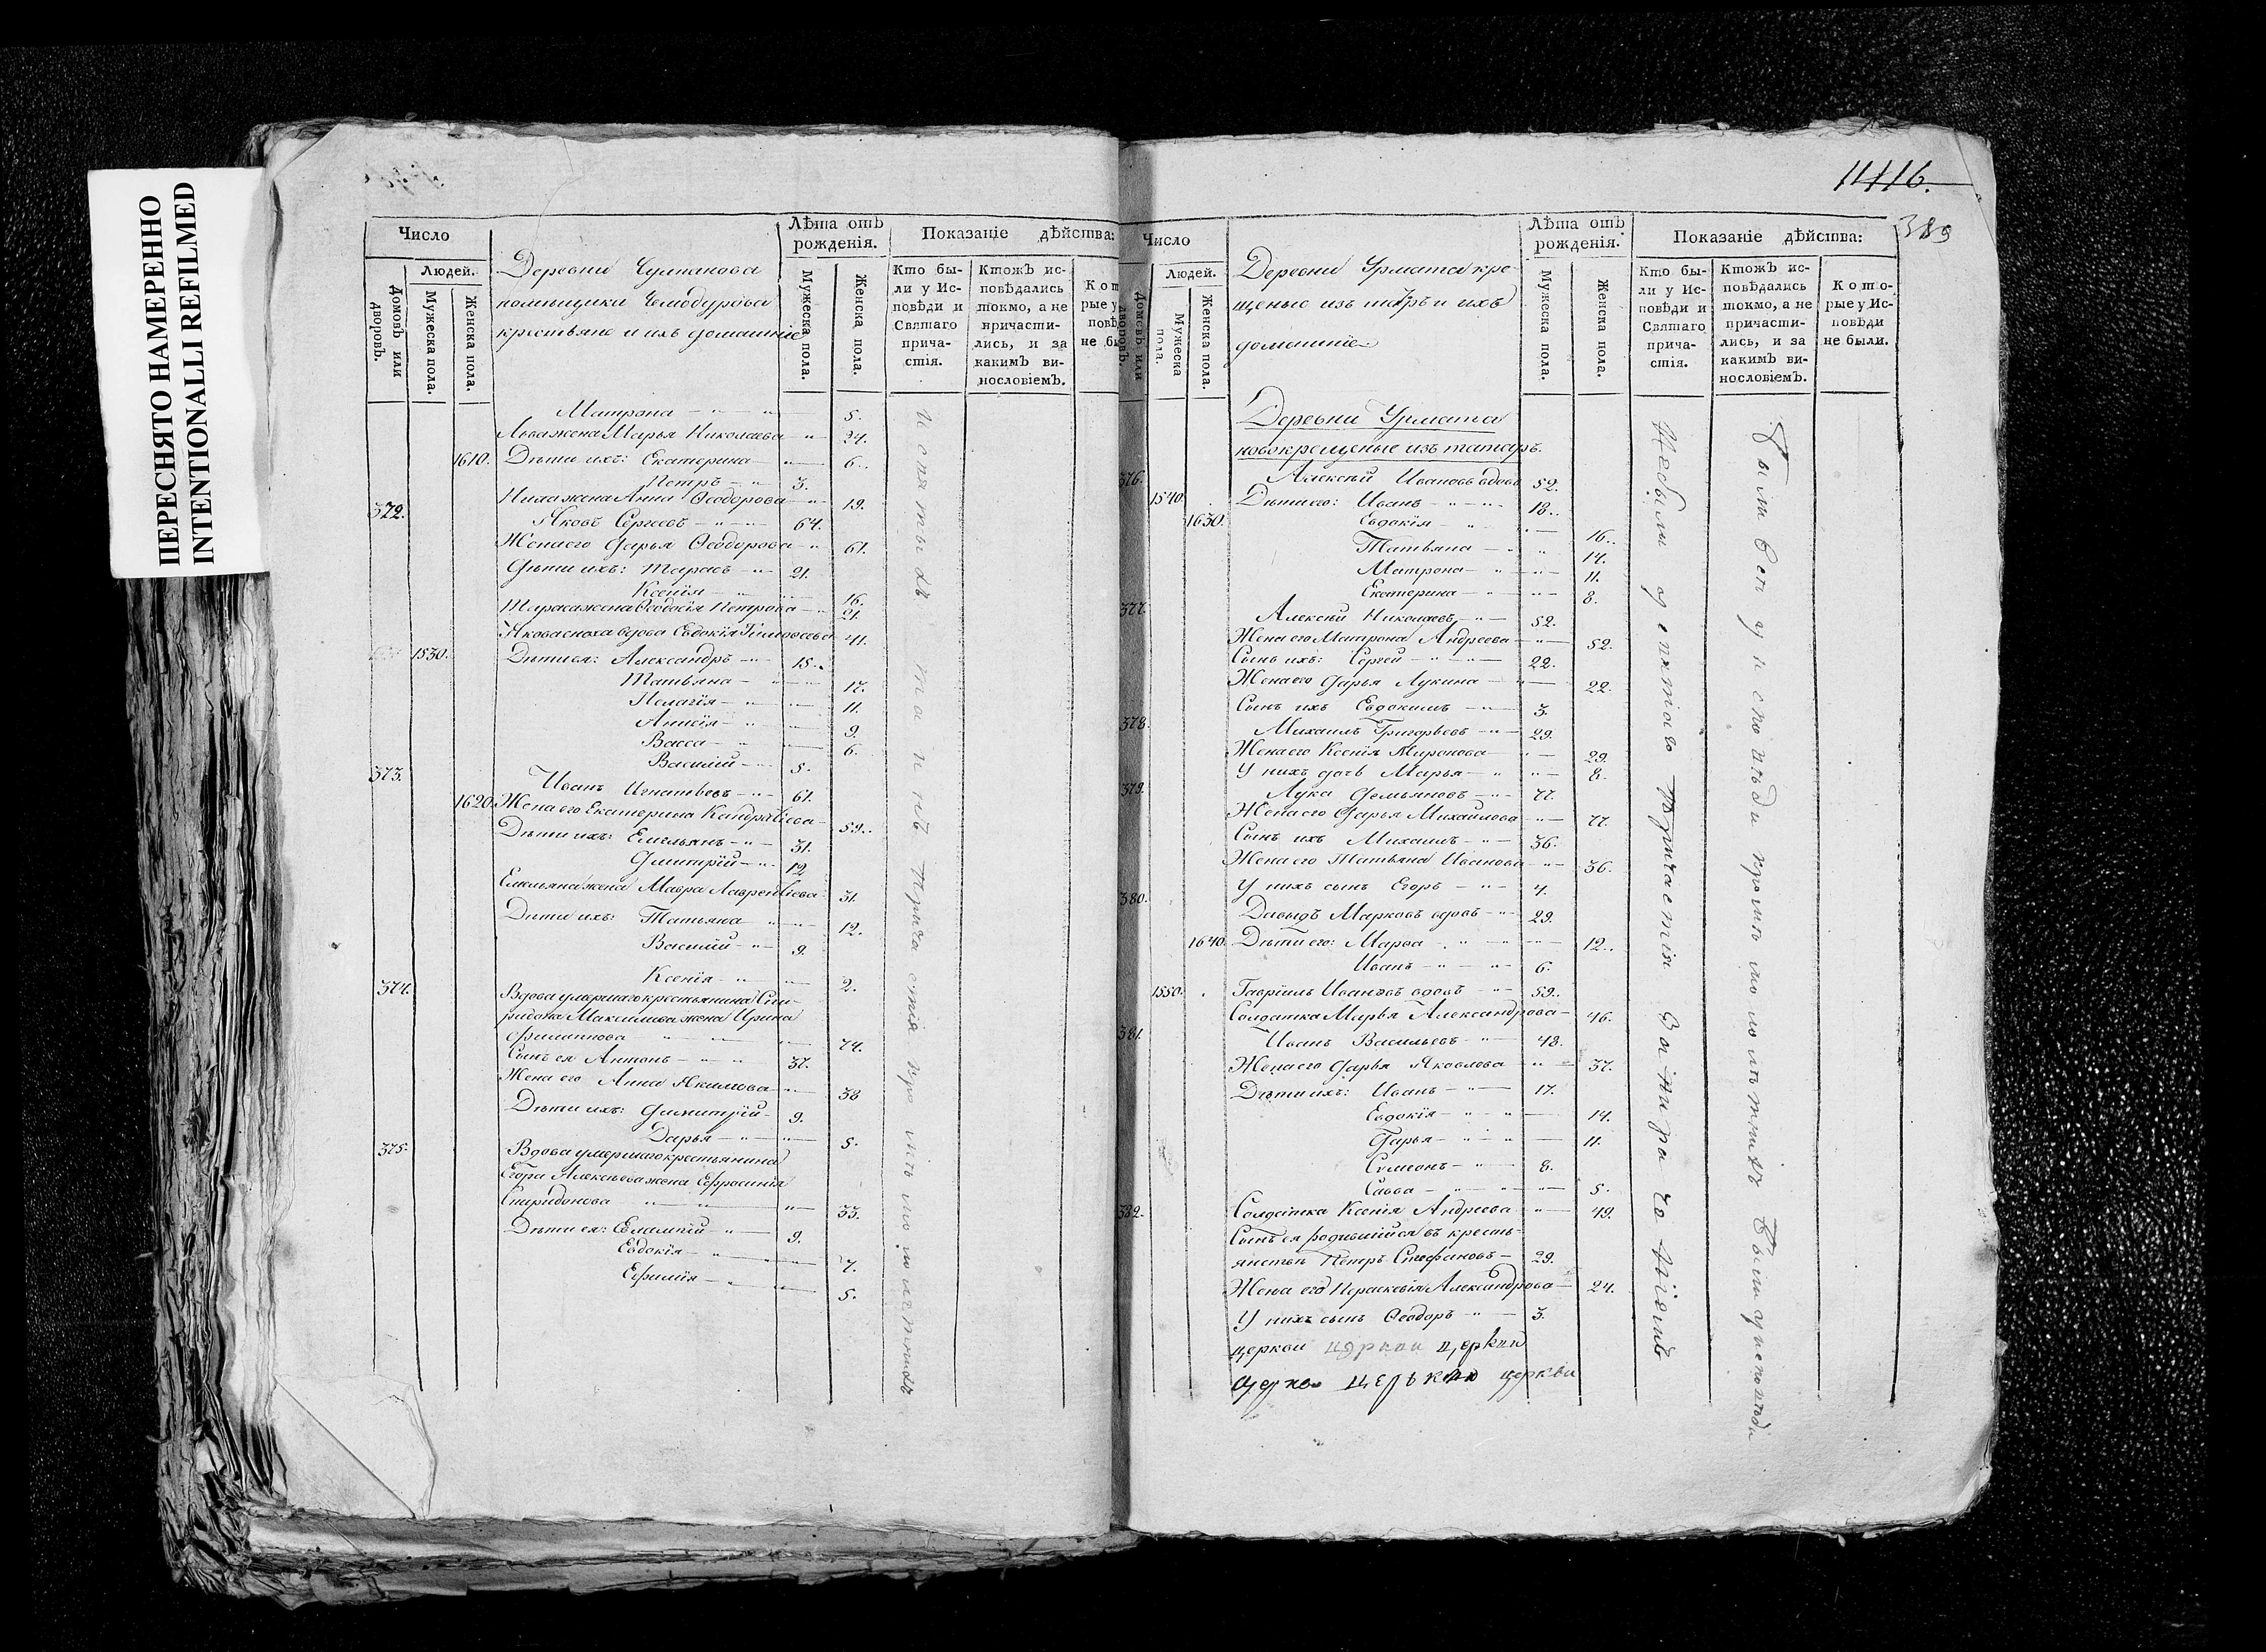 ПЕРЕСНЯТО НАМЕРЕННО
INTENTIONALLI REFILMED
Число
Людей.
Домовъ или дворовъ.
Мужеска пола.
Женска пола.
Деревни
помѣщика Чемодурова
крестьяне и ихъ домашніе
Лѣта отъ рожденія.
Мужеска пола.
Женска пола.
Показаніе дѣйства:
Кто были у Исповѣди и Святаго причастія.
Ктожъ исповѣдались токмо, а не причастились, и за какимъ винословіемъ.
Матрона 5.
Львa жена Марья Николаева 24.
1610. Дѣти ихъ: Екатерина 6.
Петръ 3.
жена Анна Ѳеодорова 19.
372. Яковъ Сергеевъ 64.
Жена его Дарья Ѳеодорова 61.
Дѣти ихъ: Тарасъ 21.
Ксенія 16.
Тараса жена Ѳеодосія Петрова 21.
Якова сноха вдова Евдокія 41.
1530. Дѣти ея: Александръ 15.
Татьяна 17.
Пелагія 11.
Анисія 9.
Васса 6.
Василій 5.
373. Иванъ Игнатьевъ 61.
1620. Жена его Екатерина 59.
Дѣти ихъ: Емельянъ 31.
Дмитрій 12
Емельяна жена Мавра Лаврентіева 31.
Дѣти ихъ: Татьяна 12.
Василій 9.
Ксенія 2.
374. Вдова умершаго крестьянина Спи-
ридона Максимова жена Ирина
Филиппова 74.
Сынъ ея Антонъ 37.
Жена его Анна Якимова 38
Дѣти ихъ: Димитрій 9.
Дарья 5.
375. Вдова умершаго крестьянина
Егора Алексѣева жена Ефросинія
Спиридонова 33.
Дѣти ея: Евлампій 9.
Евдокія 7.
Ефимія 5.
1416.
389
Число
Людей.
Домовъ или дворовъ.
Мужеска пола.
Женска пола.
Деревни Урмата кре-
щеные изъ татръ и ихъ
домашніе
Лѣта отъ рожденія.
Мужеска пола.
Женска пола.
Показаніе дѣйства:
Кто были у Исповѣди и Святаго причастія.
Ктожъ исповѣдались токмо, а не причастились, и за какимъ винословіемъ.
Которые у Исповѣди не были.
Деревни Урмата
новокрещеные изъ татаръ.
376. Алексѣй Ивановъ вдовъ 52.
1540. Дѣти его: Иванъ 18.
1630. Евдокія 16.
Татьяна 14.
Матрона 11.
Екатерина 8.
377. Алексѣй Николаевъ 52.
Жена его Матрона Андреева 52.
Сынъ ихъ: Сергей 22.
Жена его Дарья Лукина 22.
Сынъ ихъ Евдокимъ 3.
378. Михаилъ Григорьевъ 29.
Жена его Ксенія Миронова 29.
У нихъ дочь Марья 8.
379. Лука Демьяновъ 77.
Жена его Дарья Михайлова 77.
Сынъ ихъ Михаилъ 36.
Жена его Татьяна Иванова 36.
У нихъ сынъ Егоръ 4.
380. Давыдъ Марковъ вдовъ 29.
1640. Дѣти его: Марѳа 12.
Иванъ 6.
1550. Гавріилъ Ивановъ вдовъ 59.
Солдатка Марья Александрова 46.
381. Иванъ Васильевъ 48.
Жена его Дарья Яковлева 37.
Дѣти ихъ: Иванъ 17.
Евдокія 14.
Дарья 11.
Симеонъ 8.
Савва 5.
382. Солдатка Ксенія Андреева 49.
Сынъ ея родившійся въ кресть-
янствѣ Петръ Стефановъ 29.
Жена его Параскевія Александрова 24.
У нихъ сынъ Ѳеодоръ 3.
церкви церкви церкви
церкви